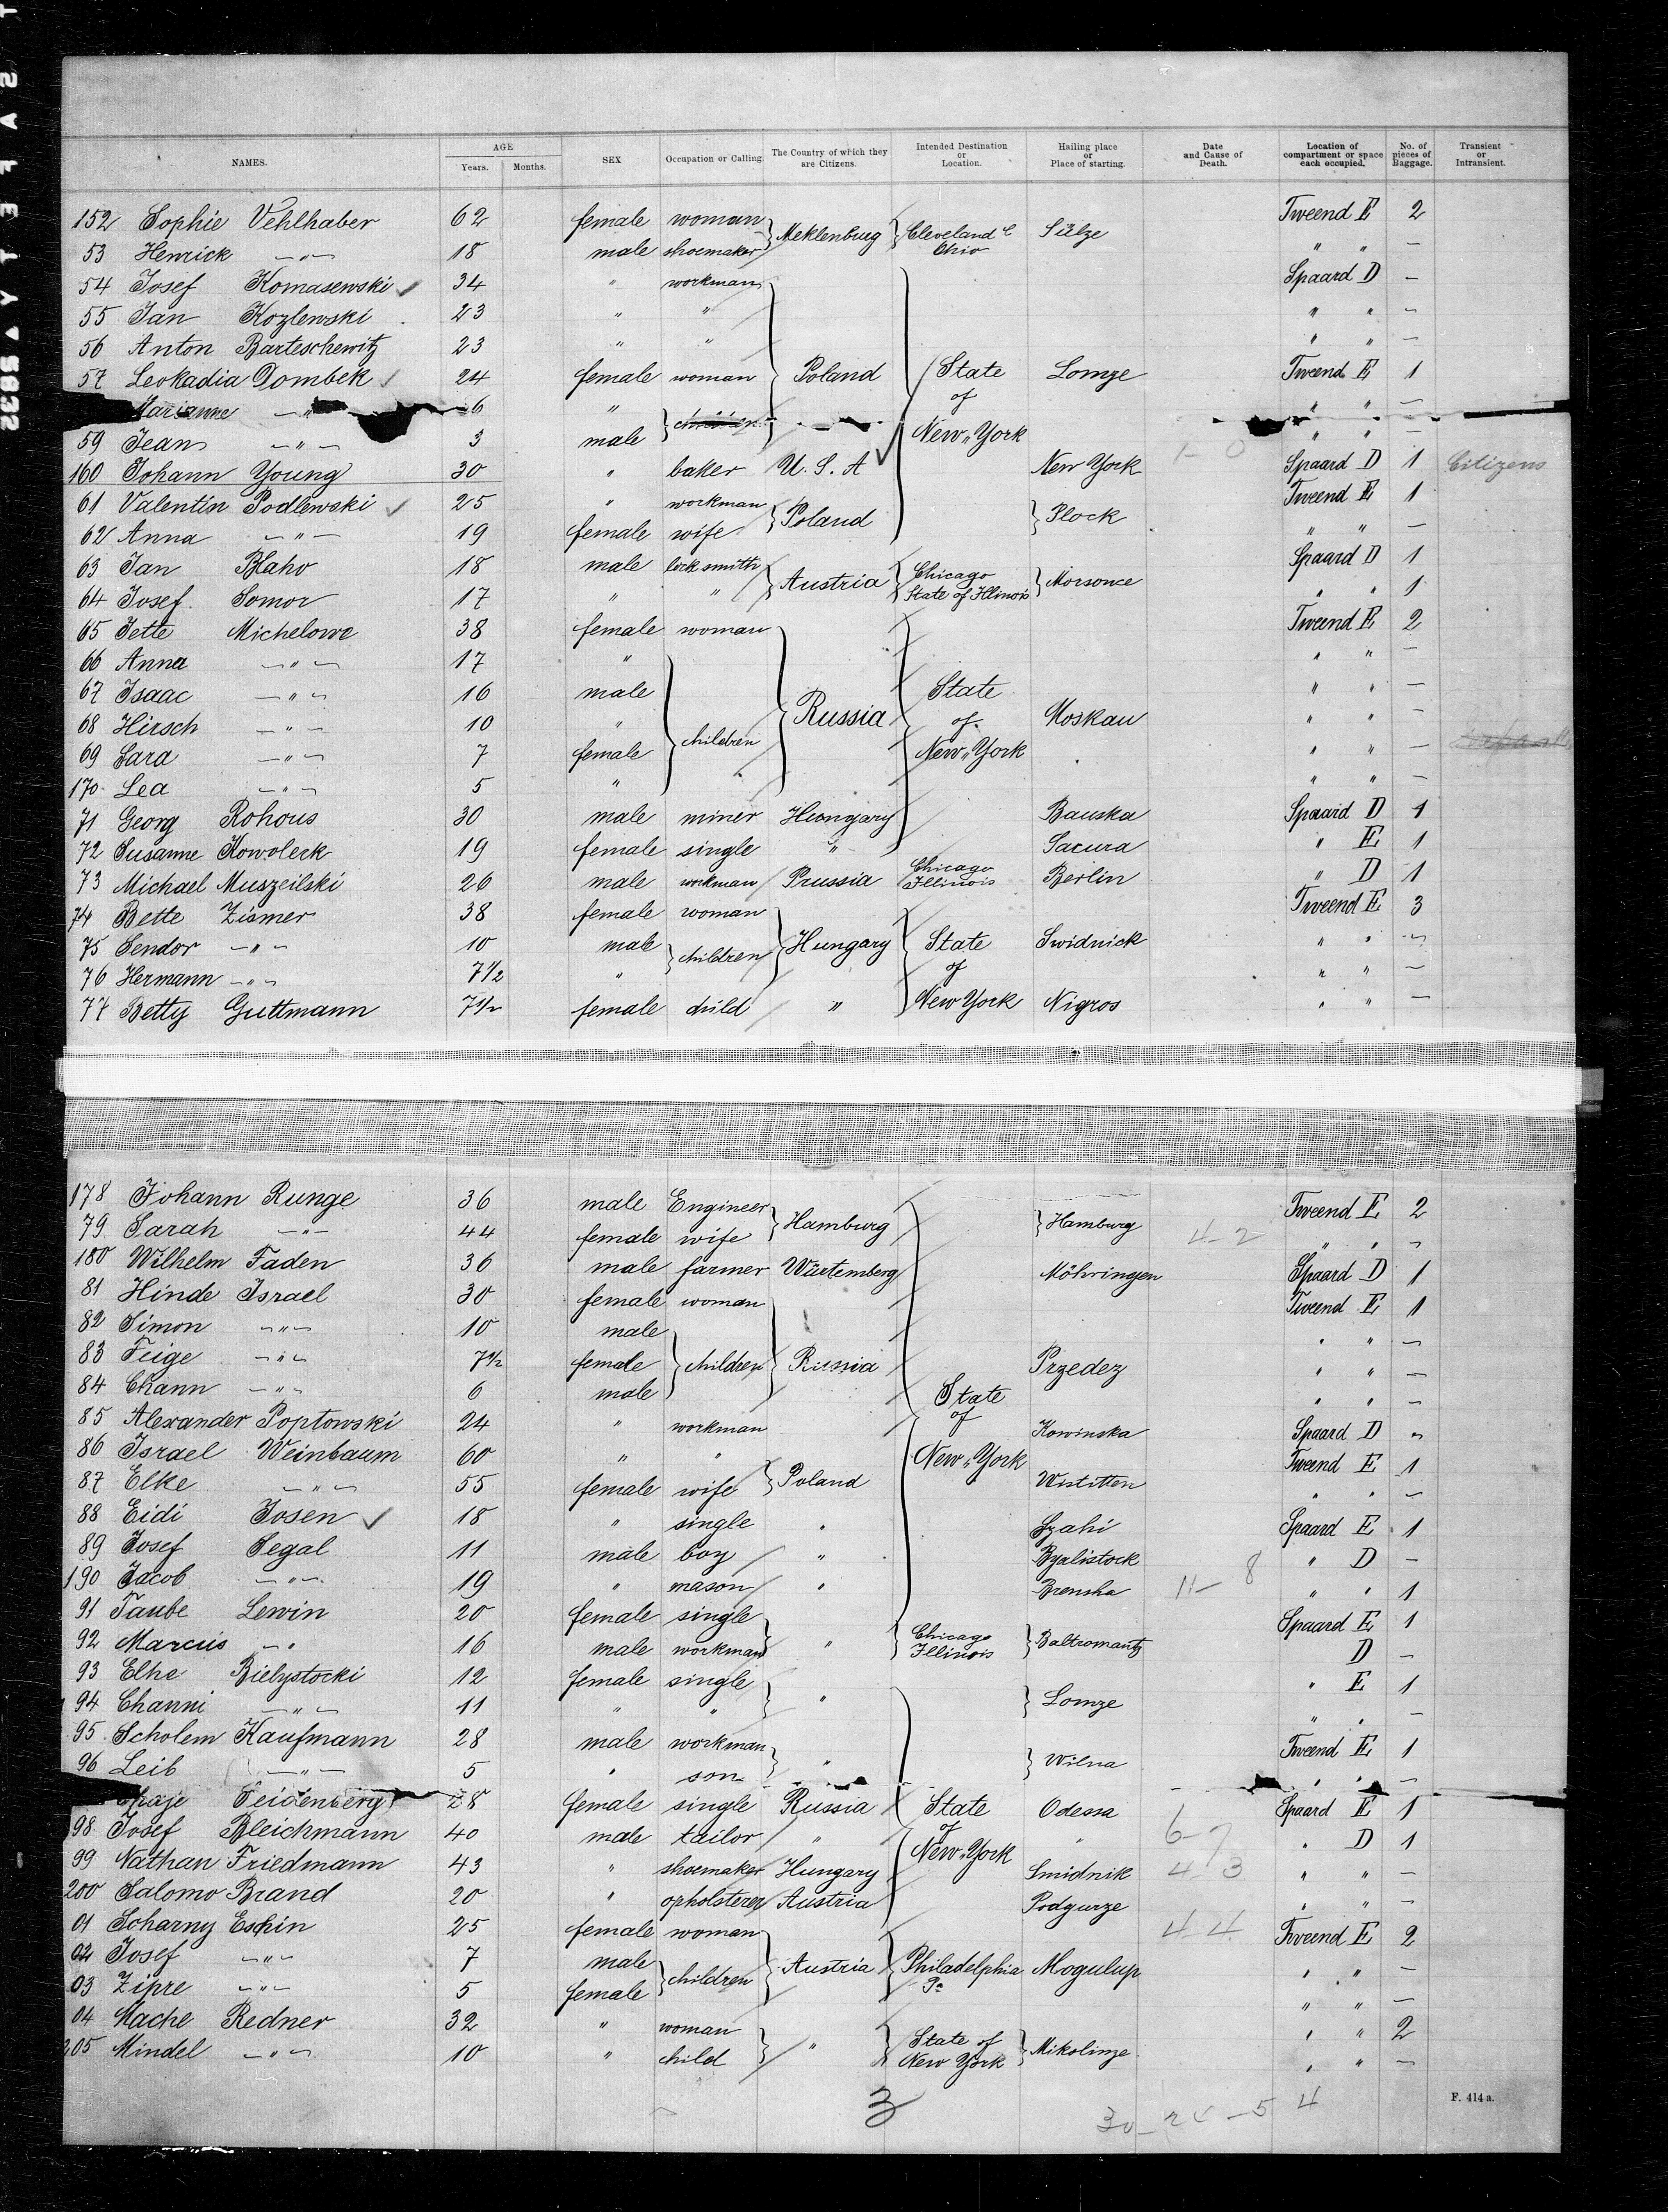 NAMES. AGE Years. Months. SEX Occupation or Calling. The Country of which they are Citizens. Intended Destination or Location. Hailing place or Place of starting. Date and Cause of Death. Location of compartment or space each occupied. No. of pieces of Baggage. Transient or Intransient.
152 Sophie Vehlhaber 62 female woman Meklenburg Cleveland Ohio Sülze Tweend E 2
53 Henrick —"— 18 male shoemaker " " —
54 Josef Komasewski 34 " workman Spaard D —
55 Jan Kozlewski 23 " " " " —
56 Anton Barteschewitz 23 " " " " —
57 Leokadia Dombek 24 female woman Poland State of New York Lomze Tweend E 1
Marianne —"— 6 " children " " —
59 Jean —"— 3 male " " —
160 Johann Young 30 " baker U.S.A New York Spaard D 1 Citizens
61 Valentin Podlewski 25 " workman Poland Plock Tweend E 1
62 Anna —"— 19 female wife " " —
63 Jan Blaho 18 male lock smith Austria Chicago State of Illinois Morsowce Spaard D 1
64 Josef Somor 17 " " " " 1
65 Jette Michelowe 38 female woman Tweend E 2
66 Anna —"— 17 " " " —
67 Isaac —"— 16 male Russia State of New York Moskau " " —
68 Hirsch —"— 10 " children " " —
69 Sara —"— 7 female " " —
170 Lea —"— 5 " " " —
71 Georg Rohous 30 male miner Hungary Bauska Spaard D 1
72 Susanne Kowoleck 19 female single " Sacura " E 1
73 Michael Muszeilski 26 male workman Prussia Chicago Illinois Berlin " D 1
74 Bette Zismer 38 female woman Tweend E 3
75 Sendor —"— 10 male children Hungary State of New York Swidnick " " —
76 Hermann —"— 7 1/2 " " " —
77 Betty Guttmann 7 1/2 female child " Nigros " " —
178 Johann Runge 36 male Engineer Hamburg Hamburg Tweend E 2
79 Sarah —"— 44 female wife 4-2 " " —
180 Wilhelm Faden 36 male farmer Würtemberg Möhringen Spaard D 1
81 Hinde Israel 30 female woman Tweend E 1
82 Simon —"— 10 male " " —
83 Feige —"— 7 1/2 female children Russia Przedez " " —
84 Chann —"— 6 male State of New York " " —
85 Alexander Poptowski 24 " workman Kowinska Spaard D "
86 Israel Weinbaum 60 " " Poland Tweend E 1
87 Elke —"— 55 female wife Wistitten " " —
88 Eidi Josen 18 " single " Szahi Spaard E 1
89 Josef Segal 11 male boy " Byalistock " D —
190 Jacob —"— 19 " mason " Brensha 11-8 " " 1
91 Taube Lewin 20 female single " Chicago Illinois Baltromantz Spaard E 1
92 Marcus —" 16 male workman D —
93 Elhe Bielystocki 12 female single " Lomze " E 1
94 Channi —"— 11 " " " " —
95 Scholem Kaufmann 28 male workman " Wilna Tweend E 1
96 Leib —"— 5 " son " " —
Seidenberg 28 female single Russia State of New York Odessa Spaard E 1
98 Josef Bleichmann 40 male tailor " " 6-7 " D 1
99 Nathan Friedmann 43 " shoemaker Hungary Smidnik 4-3 " " —
200 Salomo Brand 20 " opholsterer Austria Podgurze " " —
01 Scharny Eschin 25 female woman 4-4 Tweend E 2
02 Josef —"— 7 male children Austria Philadelphia Pa Mogulup " " —
03 Zipre —"— 5 female " " —
04 Mache Redner 32 " woman " State of New York Mikolinze " " 2
205 Mindel —"— 10 " child " " —
3
F. 414 a.